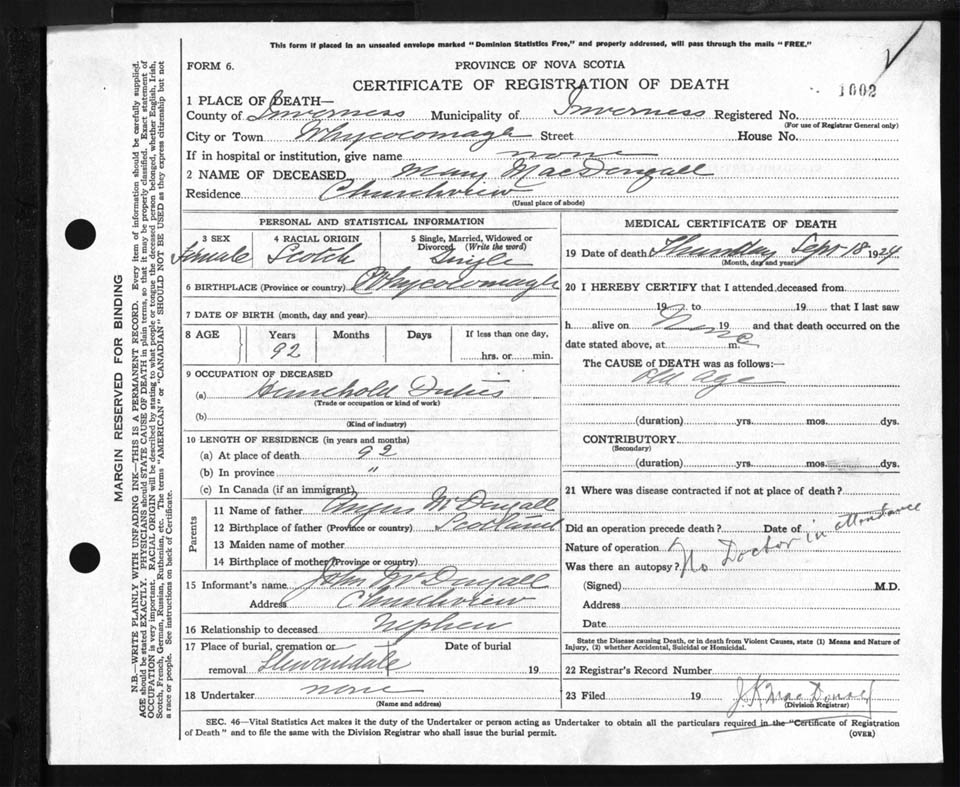 This form if placed in an unsealed envelope marked "Dominion Statistics Free," and properly addressed, will pass through the mails "FREE."
FORM 6.
PROVINCE OF NOVA SCOTIA
CERTIFICATE OF REGISTRATION OF DEATH
1002
1 PLACE OF DEATH—
County of Inverness Municipality of Inverness Registered No.
(For use of Registrar General only)
City or Town Whycocomagh Street House No.
If in hospital or institution, give name none
2 NAME OF DECEASED Mary MacDougall
Residence Churchview
(Usual place of abode)
PERSONAL AND STATISTICAL INFORMATION
3 SEX Female
4 RACIAL ORIGIN Scotch
5 Single, Married, Widowed or Divorced (Write the word) Single
6 BIRTHPLACE (Province or country) Whycocomagh
7 DATE OF BIRTH (month, day and year)
8 AGE Years Months Days If less than one day,
92 hrs. or min.
9 OCCUPATION OF DECEASED
(a) Household Duties
(Trade or occupation or kind of work)
(b)
(Kind of industry)
10 LENGTH OF RESIDENCE (in years and months)
(a) At place of death 92
(b) In province "
(c) In Canada (if an immigrant)
Parents
11 Name of father Angus McDougall
12 Birthplace of father (Province or country) Scotland
13 Maiden name of mother
14 Birthplace of mother (Province or country)
15 Informant's name John McDougall
Address Churchview
16 Relationship to deceased Nephew
17 Place of burial, cremation or Date of burial
removal Stewartdale 19
18 Undertaker none
(Name and address)
MEDICAL CERTIFICATE OF DEATH
19 Date of death Thursday Sept 18 1924
(Month, day and year)
20 I HEREBY CERTIFY that I attended deceased from
19 to 19 that I last saw
h alive on None 19 and that death occurred on
date stated above, at m.
The CAUSE of DEATH was as follows:—
old age
(duration) yrs. mos. dys.
CONTRIBUTORY
(Secondary)
(duration) yrs. mos. dys.
21 Where was disease contracted if not at place of death?
Did an operation precede death? Date of
Nature of operation
No Doctor in attendance
Was there an autopsy?
(Signed) M.D.
Address
Date
State the Disease causing Death, or in death from Violent Causes, state (1) Means and Nature of
Injury, (2) whether Accidental, Suicidal or Homicidal.
22 Registrar's Record Number
23 Filed 19
(Division Registrar)
SEC. 46—Vital Statistics Act makes it the duty of the Undertaker or person acting as Undertaker to obtain all the particulars required in the "Certificate of Registration
of Death" and to file the same with the Division Registrar who shall issue the burial permit.
(OVER)
MARGIN RESERVED FOR BINDING
N.B.—WRITE PLAINLY WITH UNFADING INK—THIS IS A PERMANENT RECORD. Every item of information should be carefully supplied.
AGE should be stated EXACTLY. PHYSICIANS should STATE CAUSE OF DEATH in plain terms, so that it may be properly classified. Exact statement of
OCCUPATION is very important. RACIAL ORIGIN will be described by stating to what people or tongue the deceased person belonged, whether English, Irish,
Scotch, French, German, Russian, Ruthenian, etc. The terms "AMERICAN" or "CANADIAN" SHOULD NOT BE USED as they express citizenship but not
a race or people. See instructions on back of Certificate.